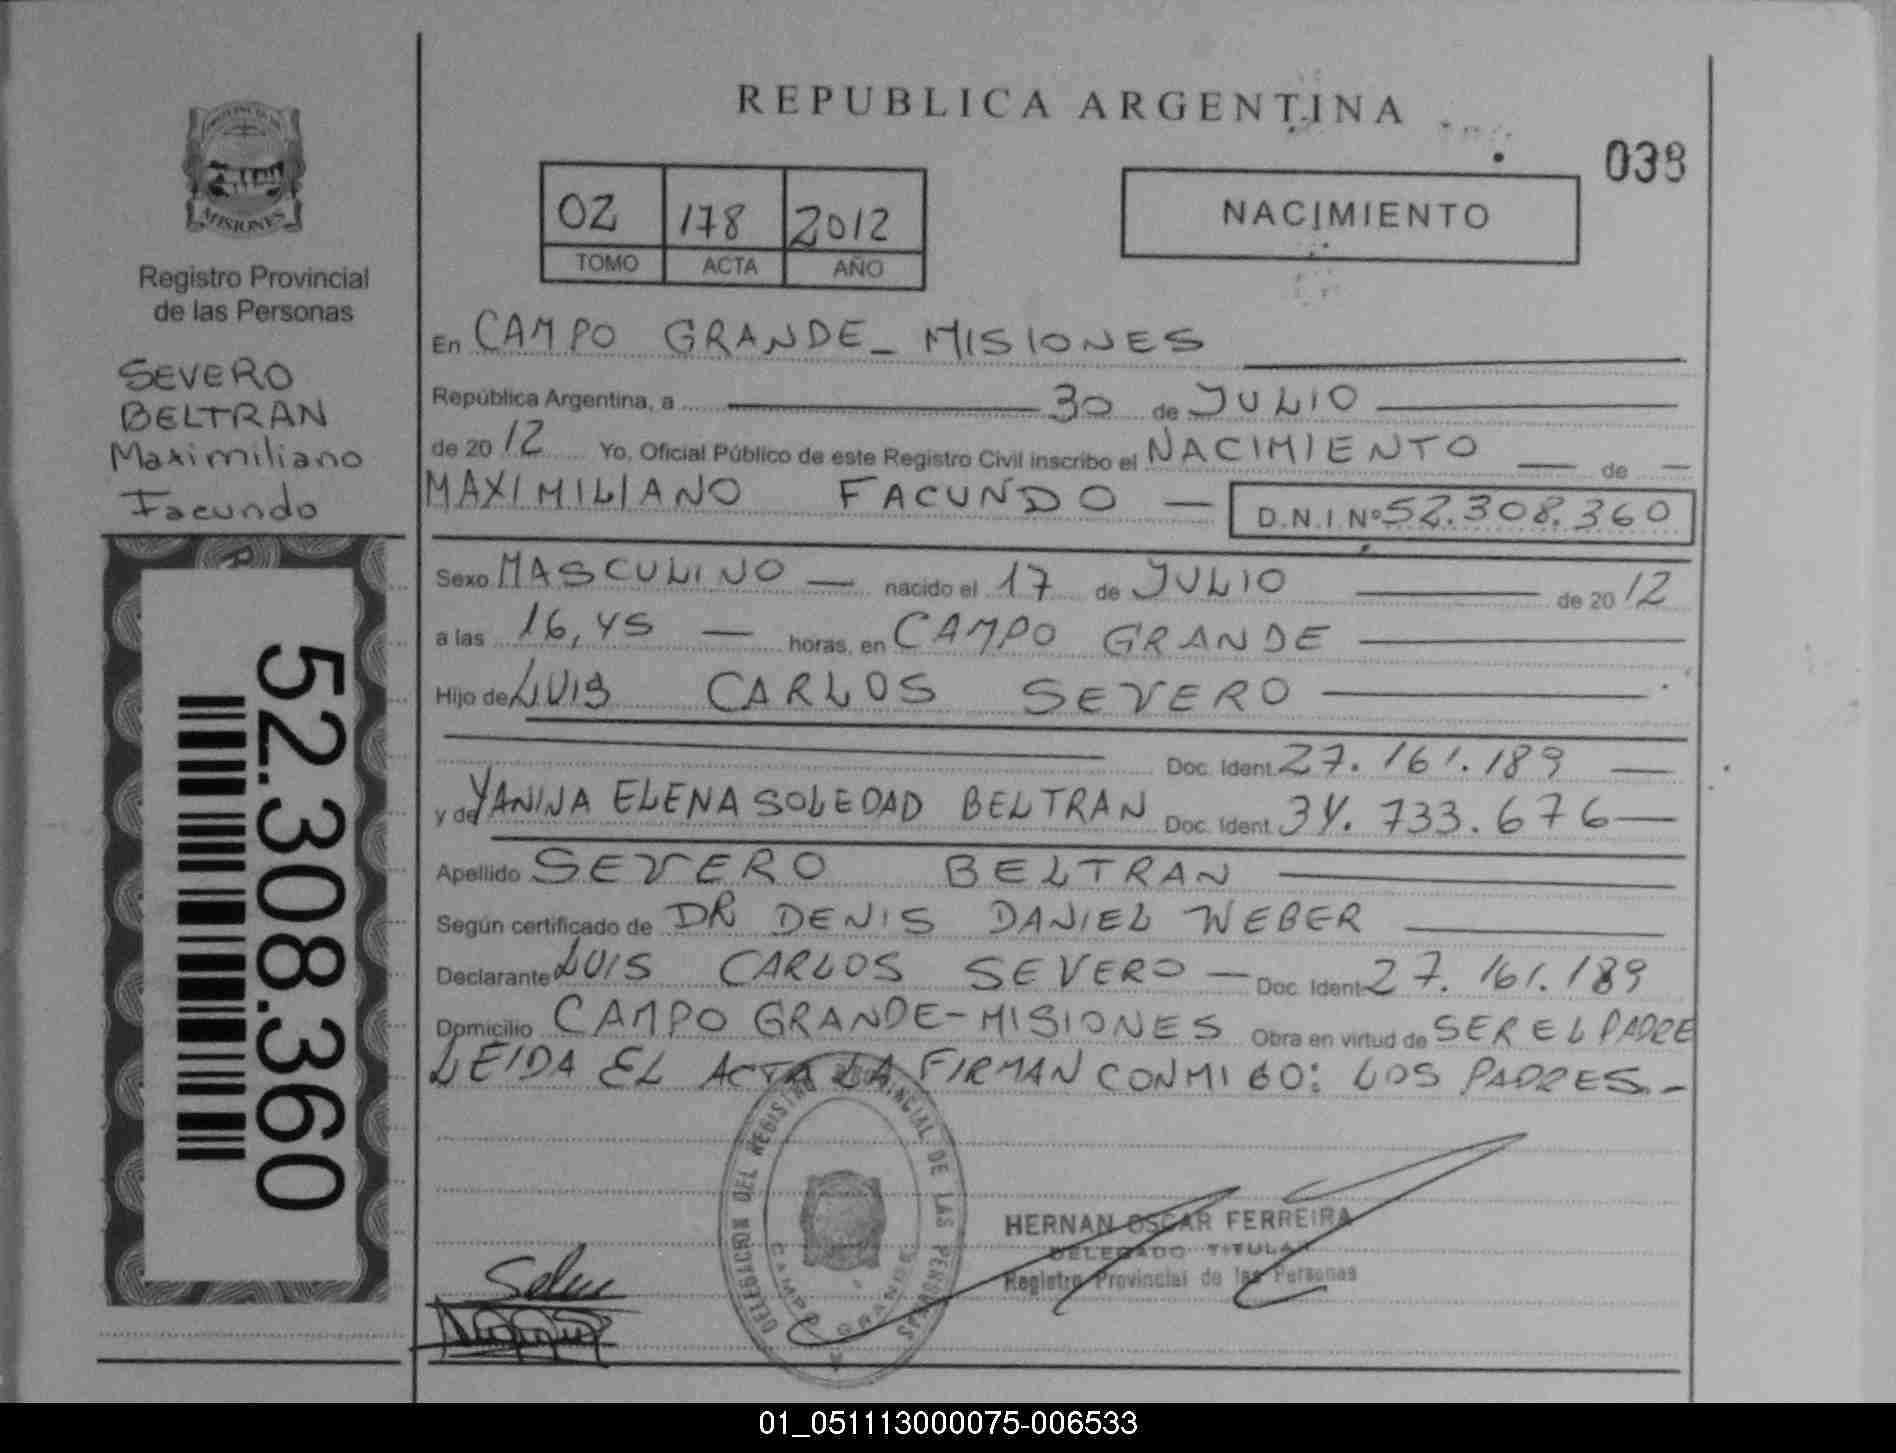 REPUBLICA ARGENTINA
038
02 178 2012
TOMO ACTA AÑO
NACIMIENTO
MISIONES
Registro Provincial
de las Personas
SEVERO
BELTRAN
Maximiliano
Facundo
52.308.360
En CAMPO GRANDE - MISIONES
República Argentina, a 30 de JULIO
de 20 12 Yo, Oficial Público de este Registro Civil inscribo el NACIMIENTO de
MAXIMILIANO FACUNDO — D.N.I. Nº 52.308.360
Sexo MASCULINO — nacido el 17 de JULIO de 20 12
a las 16,45 — horas, en CAMPO GRANDE
Hijo de LUIS CARLOS SEVERO
Doc. Ident. 27.161.189 —
y de YANINA ELENA SOLEDAD BELTRAN Doc. Ident. 34.733.676 —
Apellido SEVERO BELTRAN
Según certificado de DR DENIS DANIEL WEBER
Declarante LUIS CARLOS SEVERO — Doc. Ident. 27.161.189
Domicilio CAMPO GRANDE - MISIONES Obra en virtud de SER EL PADRE
LEIDA EL ACTA LA FIRMAN CONMIGO: LOS PADRES.-
DELEGACION DEL REGISTRO PROVINCIAL DE LAS PERSONAS
CAMPO GRANDE
HERNAN OSCAR FERREIRA
DELEGADO TITULAR
Registro Provincial de las Personas
01_051113000075-006533